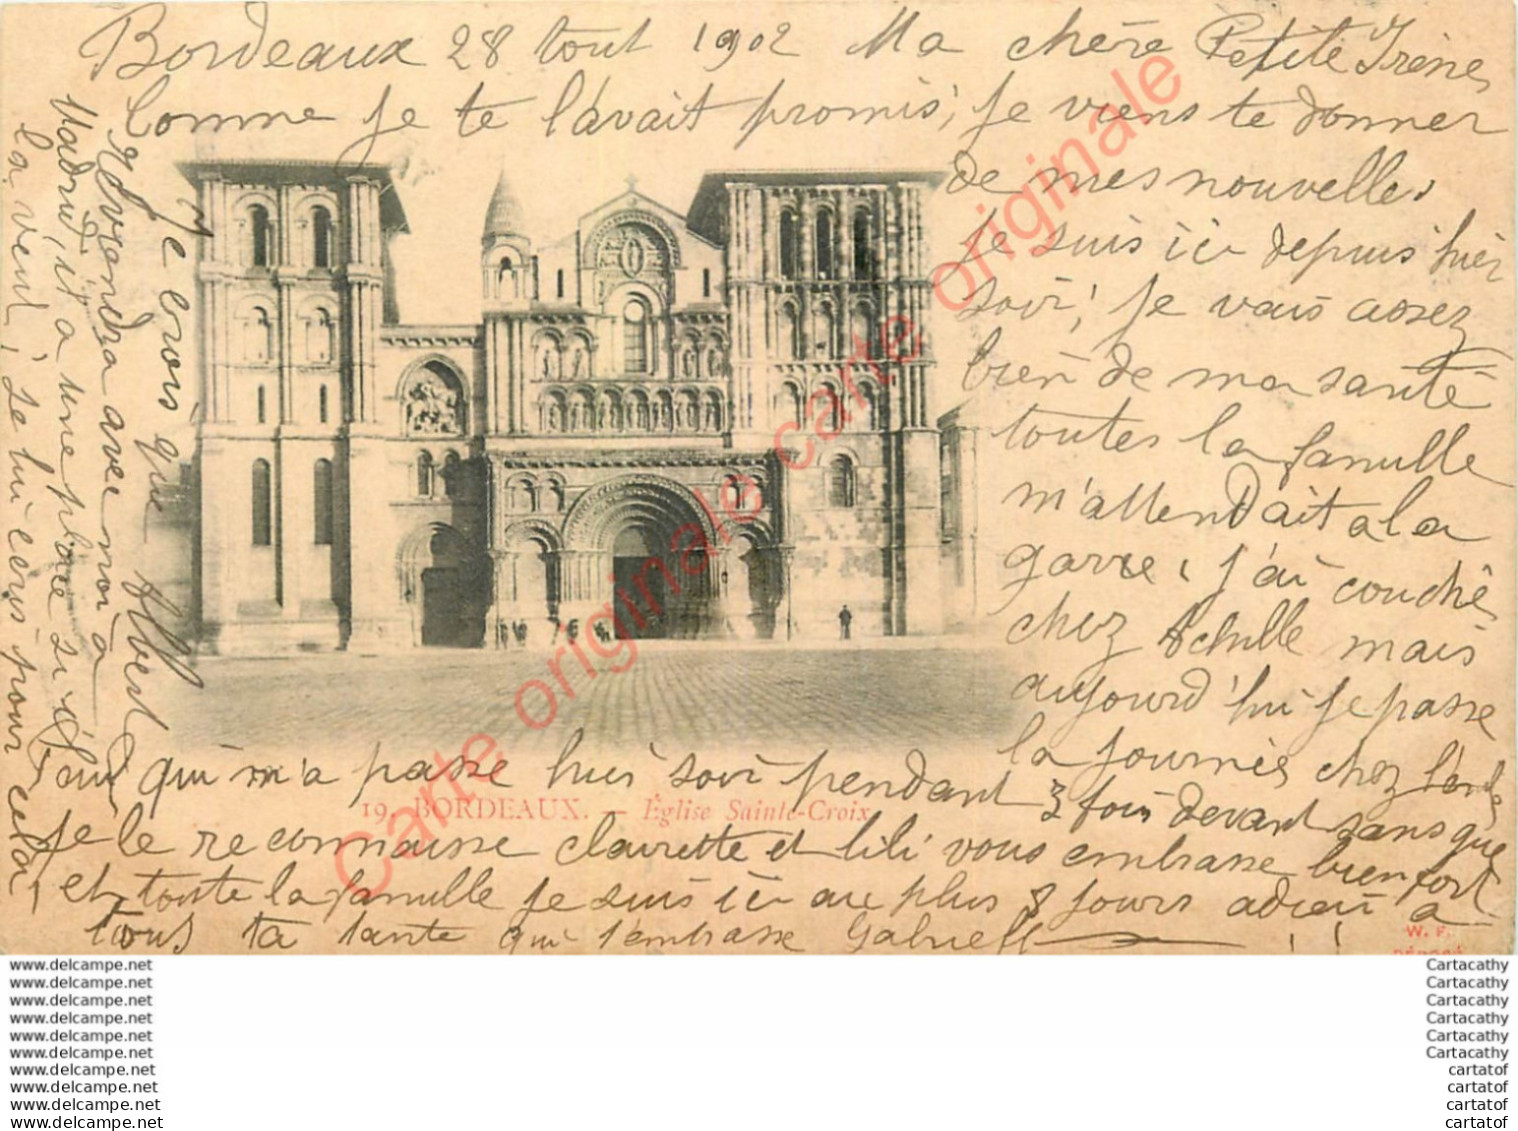 Bordeaux 28 tout 1902 Ma chère Petite Irène,
Comme je te l'avait promis, je viens te donner
de mes nouvelles
je suis ici depuis hier
soir, je vais assez
bien de ma santé
toutes la famille
m'attendait a la
garre, j'ai couché
chez Achille mais
aujourd'hui je passe
la journès chez
qui m'a passe hier soir pendant 3 fois devant sans que
je le reconnaisse clairette et lili vous embrasse bien fort
et toute la famille je suis ici au plus 8 jours adieu a
tous ta tante qui t'embrasse Gabriell
Je crois que Albert
reviendra avec moi a
Madrid, il a une place si
la veut, je lui ecris pour cela,
19. BORDEAUX. — Église Sainte-Croix
W. F.
Carte originale carte originale carte originale
www.delcampe.net
www.delcampe.net
www.delcampe.net
www.delcampe.net
www.delcampe.net
www.delcampe.net
www.delcampe.net
www.delcampe.net
www.delcampe.net
www.delcampe.net
Cartacathy
Cartacathy
Cartacathy
Cartacathy
Cartacathy
Cartacathy
cartatof
cartatof
cartatof
cartatof